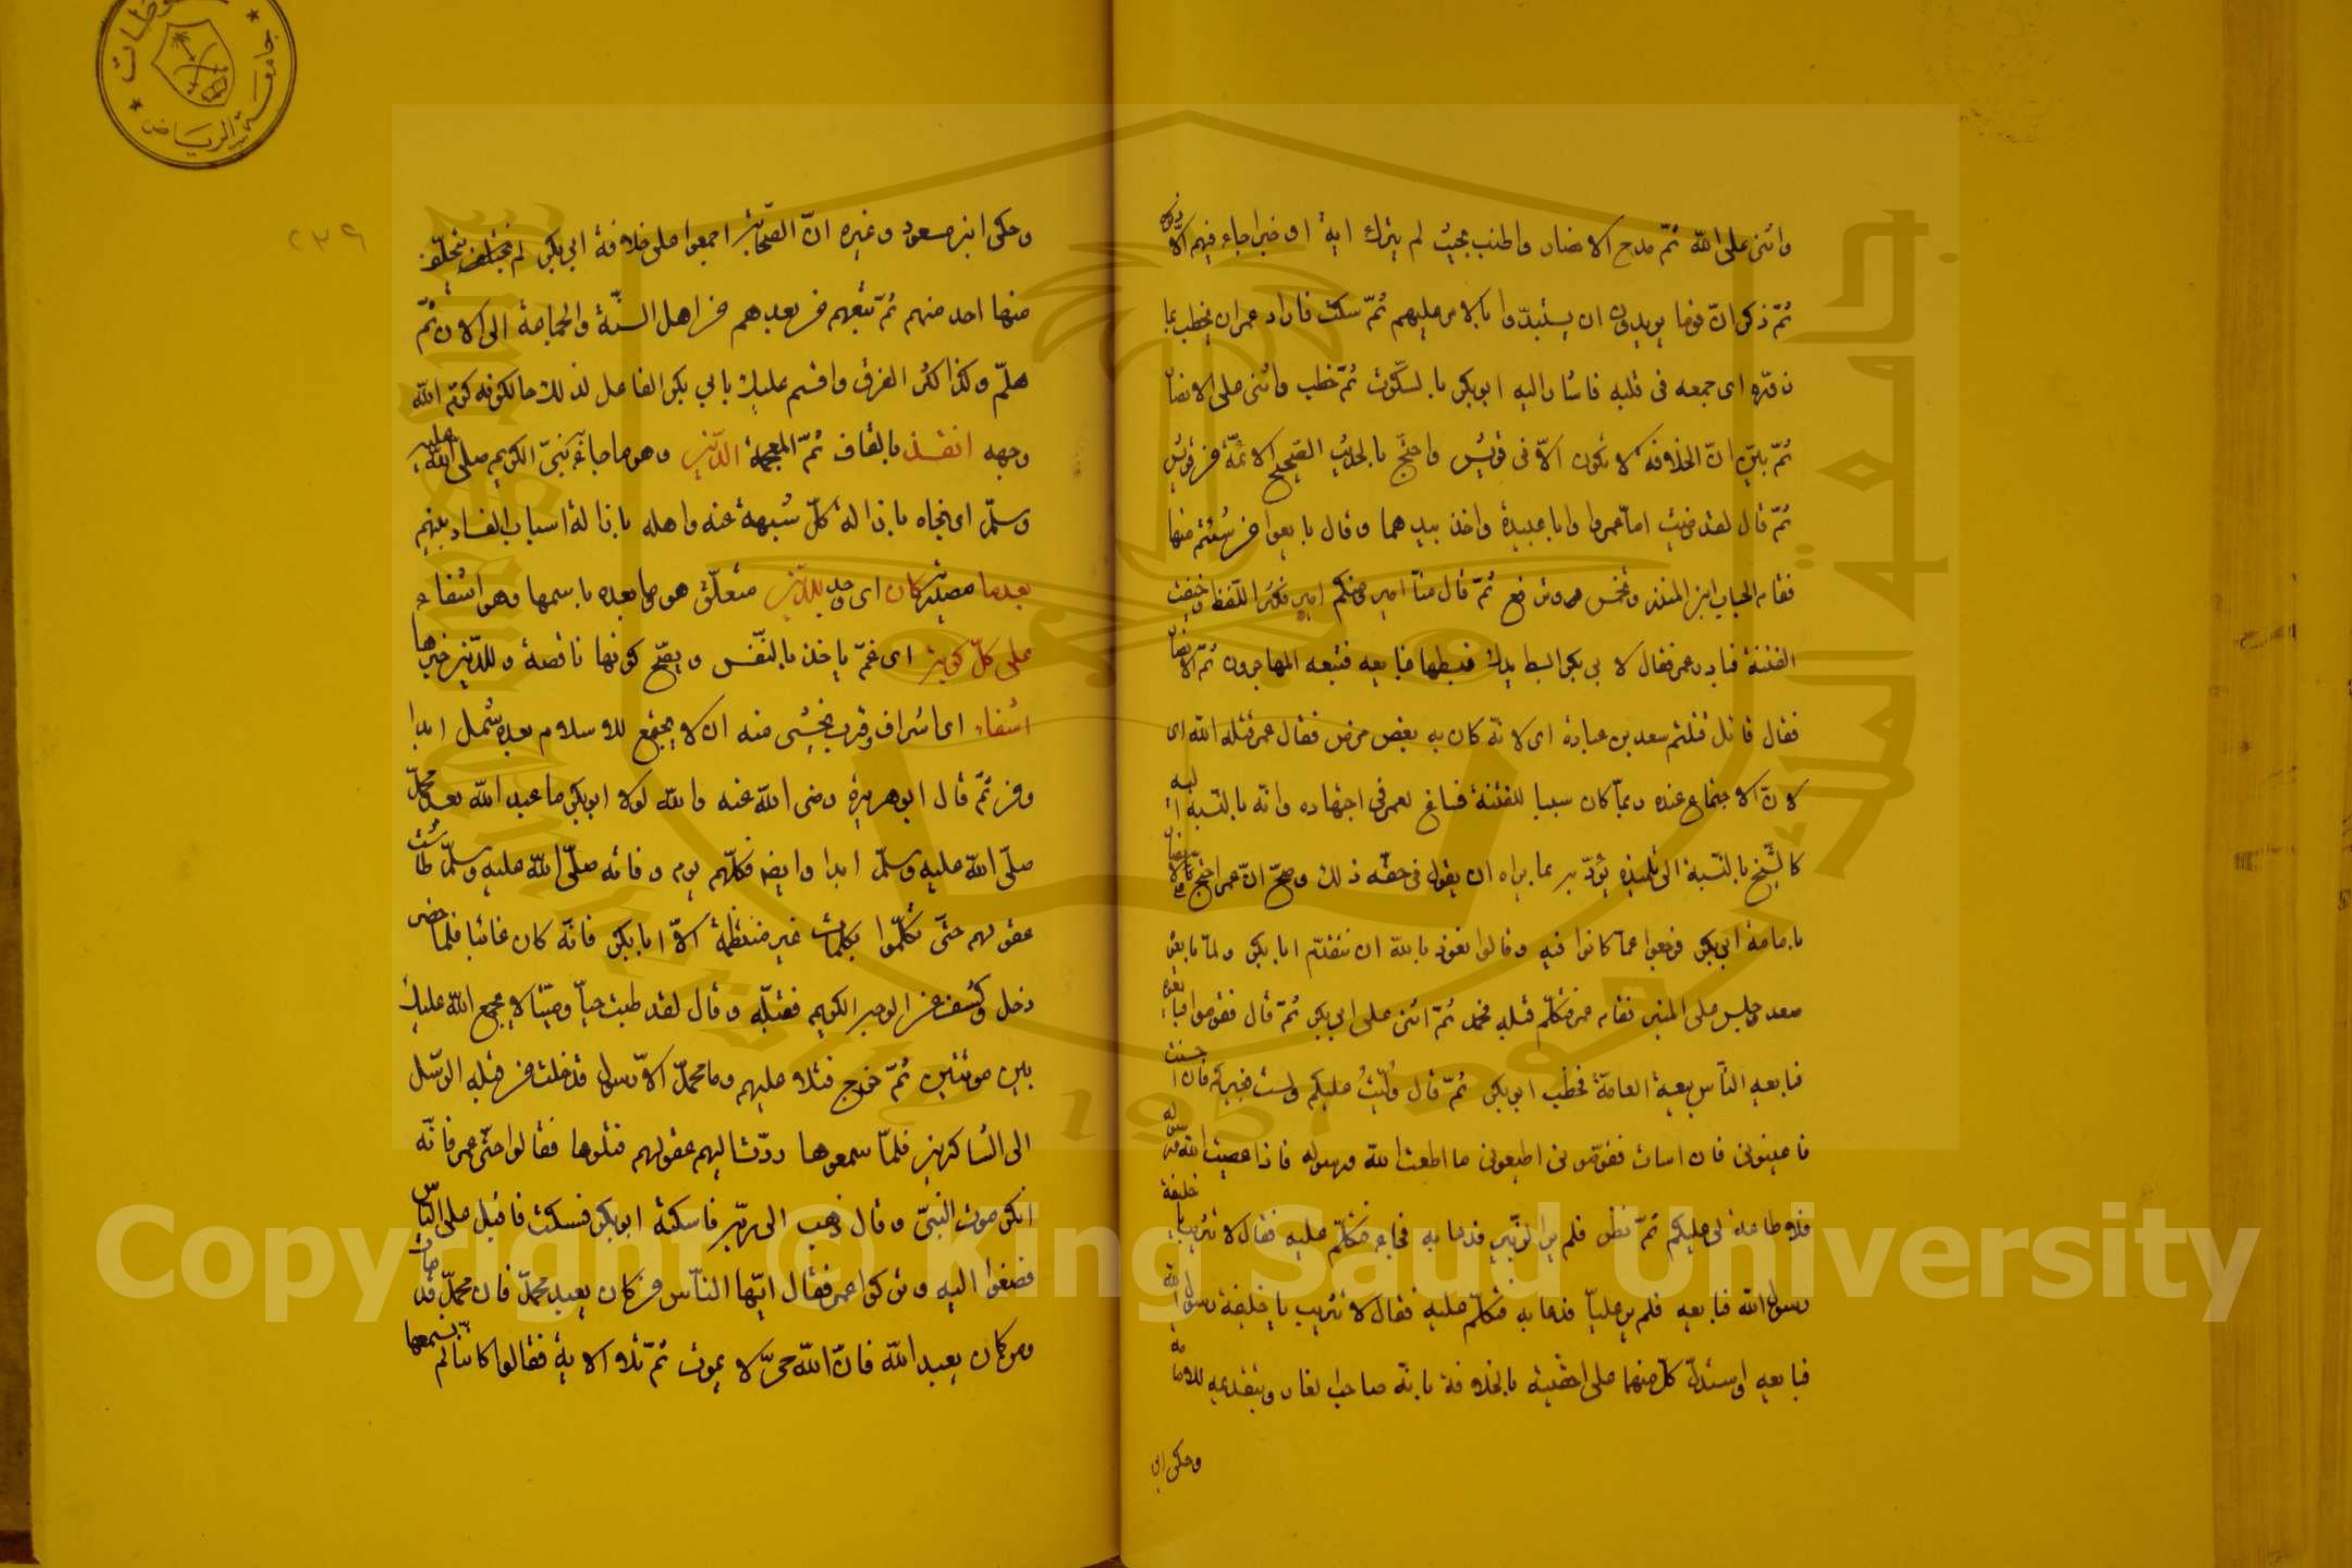 واثنى على الله ثمّ مدح الانصار واطنب بحيث لم يترك اية او خبرا جاء فيهم الّا ذكره
ثمّ ذكر انّ قوما يريدون ان يستبدّوا بالامر عليهم ثمّ سكت فاراد عمر ان يخطب بما
زوّره اى جمعه فى قلبه فاشار اليه ابو بكر بالسكوت ثمّ خطب واثنى على الانصار
ثمّ بيّن انّ الخلافة لا تكون الّا فى قريش واحتجّ بالحديث الصّحيح الائمّة من قريش
ثمّ قال لقد رضيت امّا عمروا وابا عبيدة واخذ بيدهما وقال بايعوا من شئتم منها
فقام الحباب ابن المنذر ثمّ قال منّا امير ومنكم امير فكثر اللّغط وخفت
الفتنة فبادر عمر فقال لابى بكر ابسط يدك فبسطها فبايعه فتبعه المهاجرون ثمّ الانصار
فقال قائل قتلتم سعد بن عبادة اى لانّه كان به بعض مرض فقال عمر قتله الله اى
لانّ الاجتماع عنده ربمّا كان سببا للفتنة فساغ لعمر فى اجتهاده وانّه بالنّسبة اليه
كالشّيخ بالنّسبة الى تلميذه يؤدّبه بما يراه ان يقول فى حقّه ذلك وصحّ انّ عمر احتجّ على الانصار
بامامة ابى بكر فرجعوا عمّا كانوا فيه وقالوا نعوذ بالله ان نتقدّم ابا بكر ولمّا بايعه
سعد وجلس على المنبر فقام عمر فتكلّم قبله فحمد ثمّ اثنى على ابى بكر ثمّ قال فقوموا فبايعوه
فبايعه النّاس بيعة العامّة فخطب ابو بكر ثمّ قال وُلّيتُ عليكم ولست بخيركم فان احسنت
فاعينونى فان اسات فقوّمونى اطيعونى ما اطعت الله ورسوله فاذا عصيت الله ورسوله
فلا طاعة لى عليكم ثمّ نظر فلم ير الزّبير فدعا به فجاء فتكلّم عليه فقال لا تثريب يا خليفة
رسول الله فبايعه فلم ير عليّا فدعا به فتكلّم عليه فقال لا تثريب يا خليفة رسول الله
فبايعه واستدلّ كلّ منهما على احقّيته بالخلافة بانّه صاحب الغار وبتقديمه للامامة
وحكى ابن
وحكى ابن مسعود وغيره انّ الصّحابة اجمعوا على خلافة ابى بكر لم يتخلّف
منها احد منهم ثمّ تبعهم من بعدهم من اهل السنّة والجماعة الى الان ثمّ
هلمّ وكذا اكثر الفرق واقسم عليك بابى بكر الفاعل لذلك حالكونه كرّم الله
وجهه انقذ بالقاف ثمّ المعجمة الدّين وهو ما جاء به نبيّ الكريم صلى الله عليه
وسلّم اى نجاه بازالة كلّ شبهة عنه واهله بازالة اسباب الفساد بينهم
بعد ما مصدريّة كان اى وجد للدّين متعلّق هو وما بعده باسمها وهو اشفاء
على كلّ كربة اى غمّ ياخذ بالنّفس ويصحّ كونها ناقصة وللدّين خبرها
اشفاء اى اشراف وقرب يخشى منه ان لا يجتمع للاسلام بعده شمل ابدا
ومن ثمّ قال ابو هريرة رضى الله عنه والله لولا ابو بكر ما عبد الله بعد محمّد
صلّى الله عليه وسلّم ابدا وايضا فكلّهم يوم وفاته صلّى الله عليه وسلّم طاشت
عقولهم حتّى تكلّموا بكلمات غير منتظمة الّا ابا بكر فانّه كان غائبا فلمّا حضر
دخل وكشف عن الوجه الكريم فقبّله وقال لقد طبت حيّا وميّتا لا يجمع الله عليك
بين موتتين ثمّ خرج فتلا عليهم وما محمّد الّا رسول قد خلت من قبله الرّسل
الى الشاكرين فلمّا سمعوها ردّت اليهم عقولهم فتلوها فقالوا حتّى عمر فانّه
انكر موت النبىّ وقال ذهب الى ربّه فاسكته ابو بكر فسكت فاقبل على النّاس
فصغوا اليه وتركوا عمر فقال ايّها النّاس من كان يعبد محمّدا فان محمّدا قد مات
ومن كان يعبد الله فانّ الله حىّ لا يموت ثمّ تلا الاية فقالوا كانّا لم نسمعها
٢٣٩
جامعة الرياض
جامعة الملك سعود
King Saud University
1957
Copyright © King Saud University